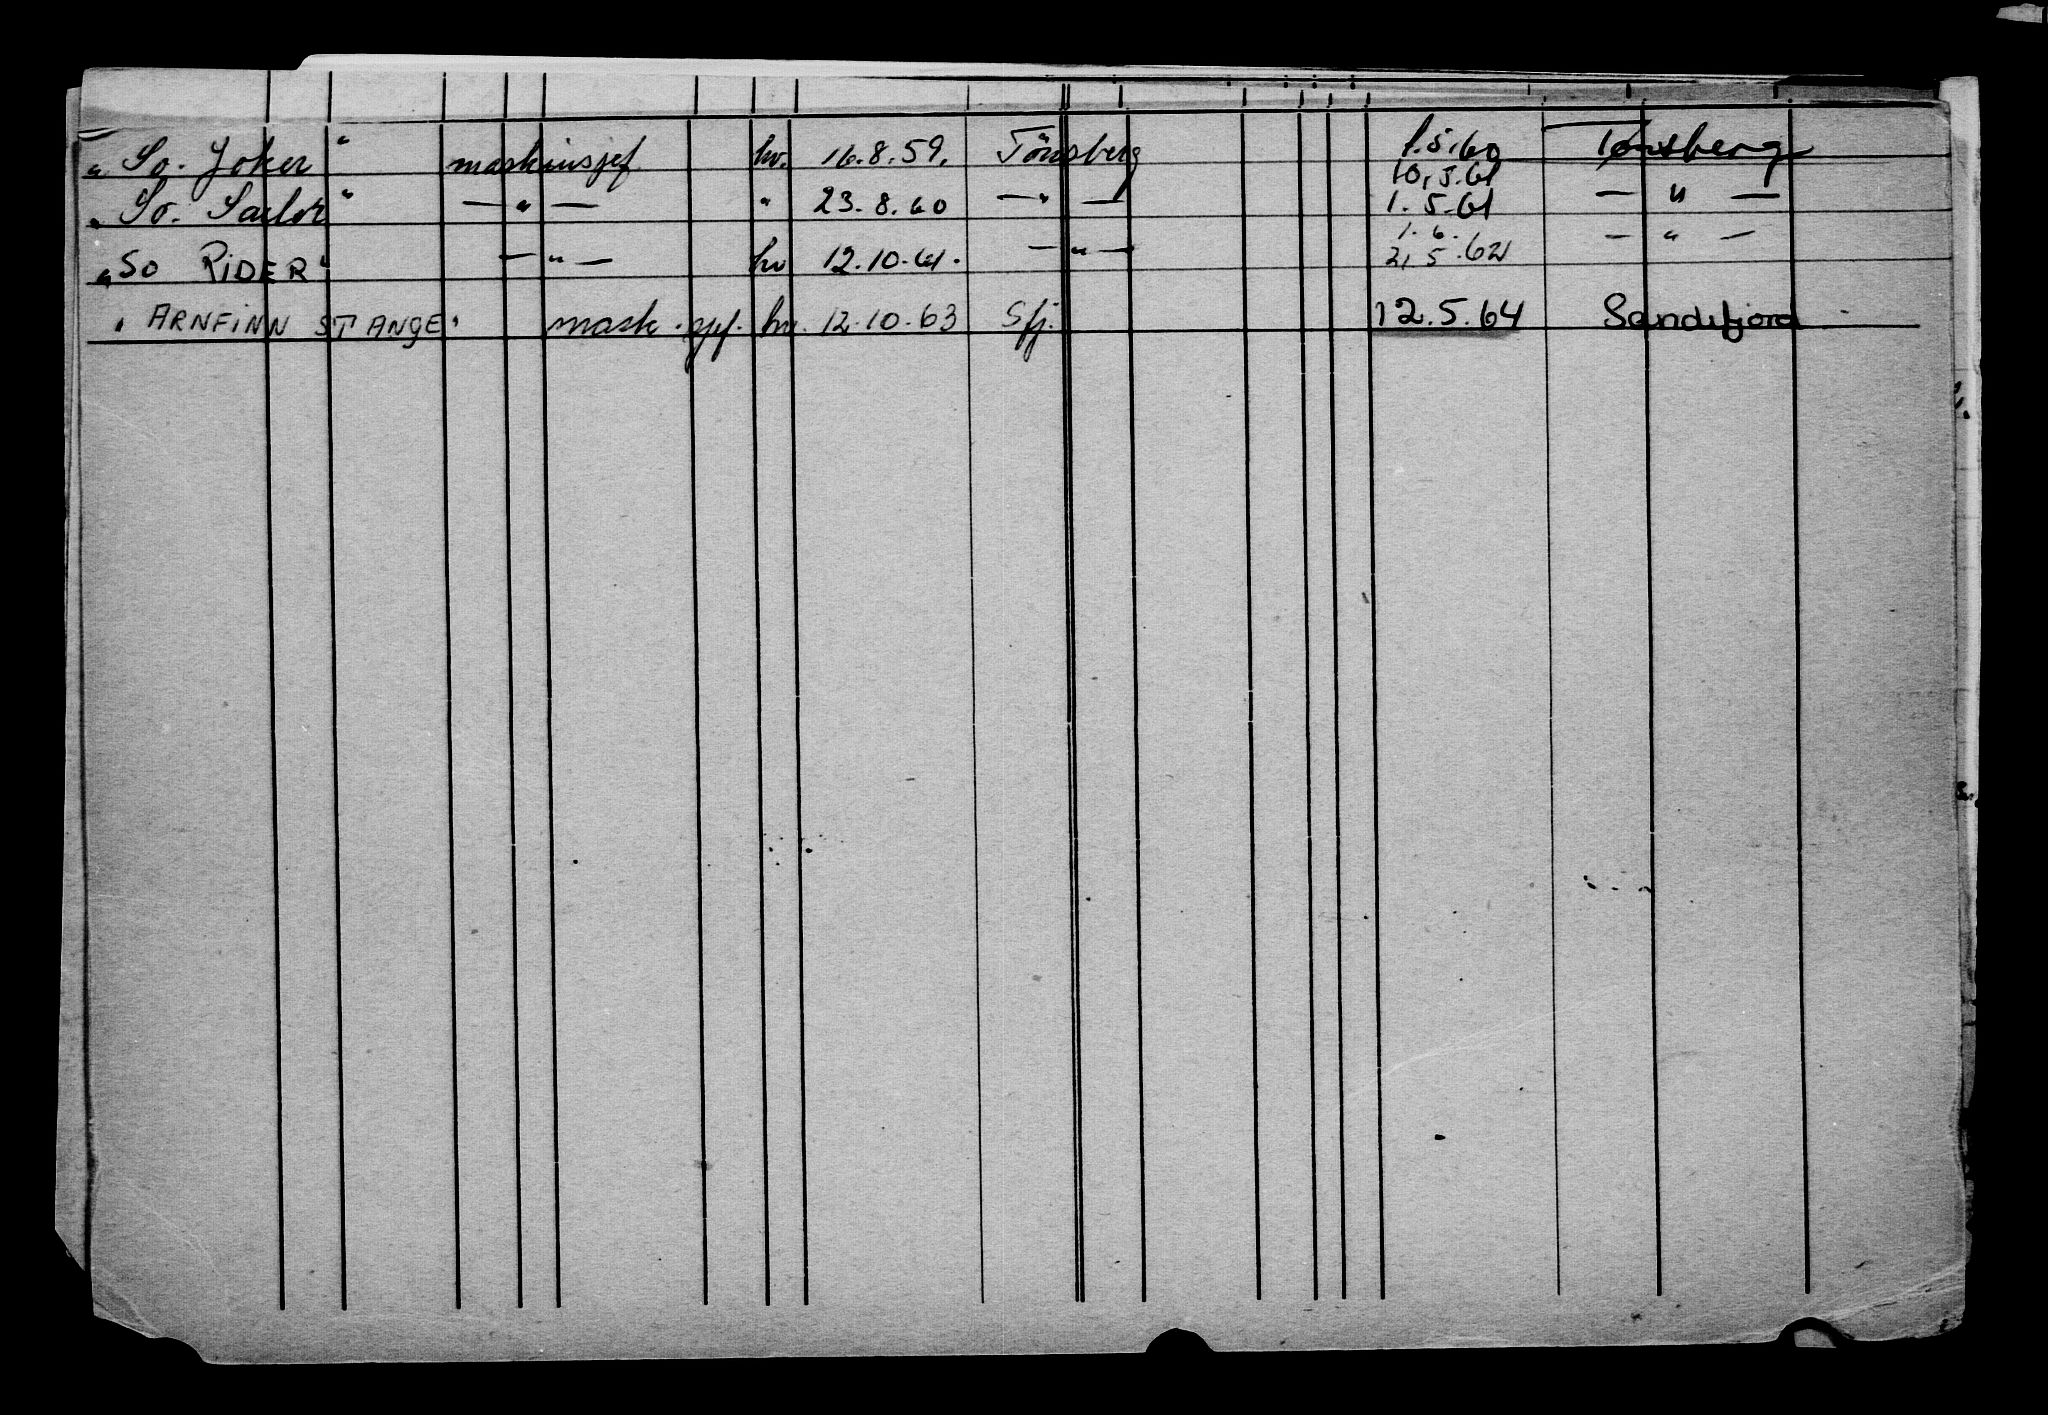 „ So. Joker " maskinsjef hv. 16.8.59. Tönsberg 1.5.60 Tønsberg
10.5.61
„ So. Sailor " — " — " 23.8.60 — " — 1.5.61 — " —
1.6.
„ SO RIDER " — " — hv 12.10.61. — " — 2.5.62 — " —
" ARNFINN STANGE " mask. sjef. hv. 12.10.63 Sfj. 12.5.64 Sandefjord